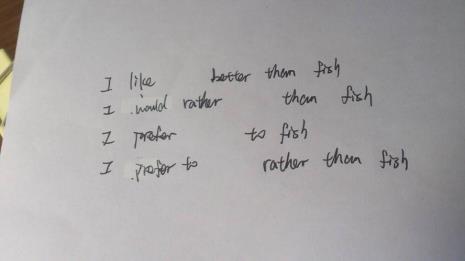 I like better than fish
I would rather than fish
I prefer to fish
I prefer to rather than fish